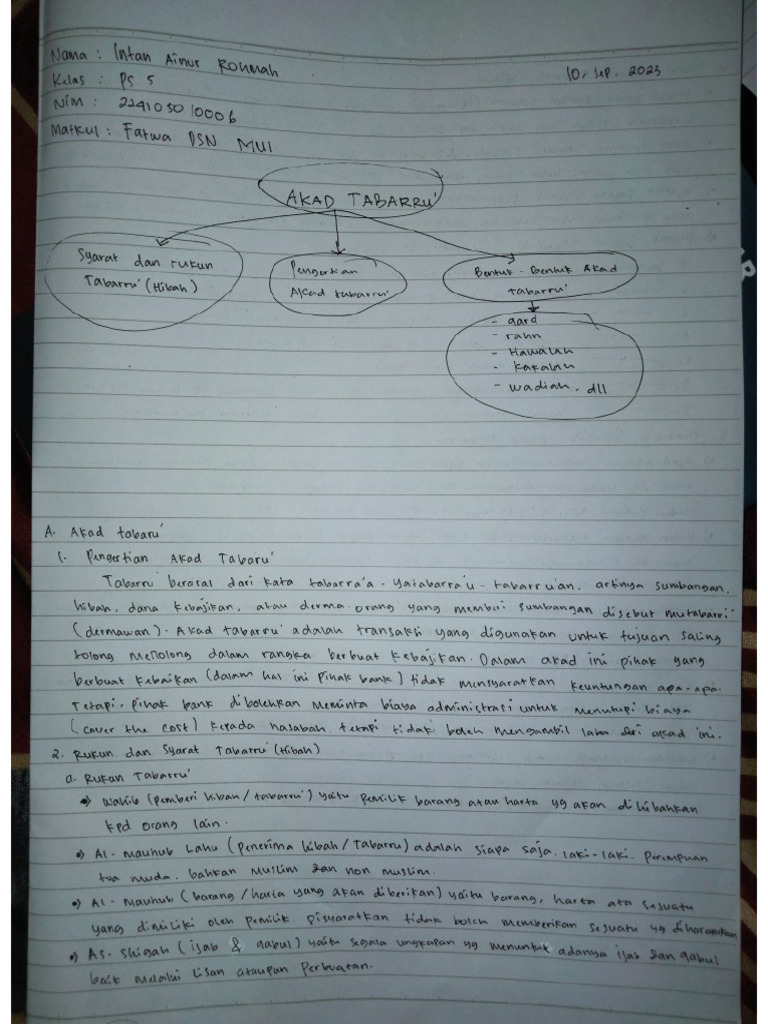 Nama : Intan Ainur Rohmah
10, Sep. 2023
Kelas : PS 5
Nim : 224105010006
Matkul : Fatwa DSN MUI
AKAD TABARRU'
Syarat dan rukun
Tabarru' (Hibah)
Pengertian
Akad tabarru'
Bentuk - Bentuk Akad
tabarru'
- qard
- rahn
- Hawalah
- kafalah
- wadiah, dll
A. Akad tabaru'
1. Pengertian Akad Tabaru'
Tabarru' berasal dari kata tabarra'a - yatabarra'u - tabarru'an, artinya sumbangan,
hibah, dana kebajikan, atau derma. orang yang memberi sumbangan disebut mutabarri'
(dermawan). Akad tabarru' adalah transaksi yang digunakan untuk tujuan saling
tolong menolong dalam rangka berbuat kebajikan. Dalam akad ini pihak yang
berbuat kebaikan (dalam hal ini pihak bank) tidak mensyaratkan keuntungan apa-apa.
Tetapi, pihak bank dibolehkan meminta biaya administrasi untuk menutupi biaya
(cover the cost) kepada nasabah tetapi tidak boleh mengambil laba dari akad ini.
2. Rukun dan Syarat Tabarru' (Hibah)
a. Rukun Tabarru'
•) Wahib (pemberi hibah / tabarru') yaitu pemilik barang atau harta yg akan dihibahkan
kpd orang lain.
•) Al- mauhub Lahu (penerima hibah / Tabarru) adalah siapa saja, laki-laki, perempuan
tua muda, bahkan muslim dan non muslim.
•) Al- mauhub (barang / harta yang akan diberikan) yaitu barang, harta ata sesuatu
yang dimiliki oleh pemilik. Disyaratkan tidak boleh memberikan sesuatu yg diharamkan
•) As- shigah (ijab & qabul) yaitu segala ungkapan yg menuntut adanya ijab dan qabul
baik melalui lisan ataupun perbuatan.